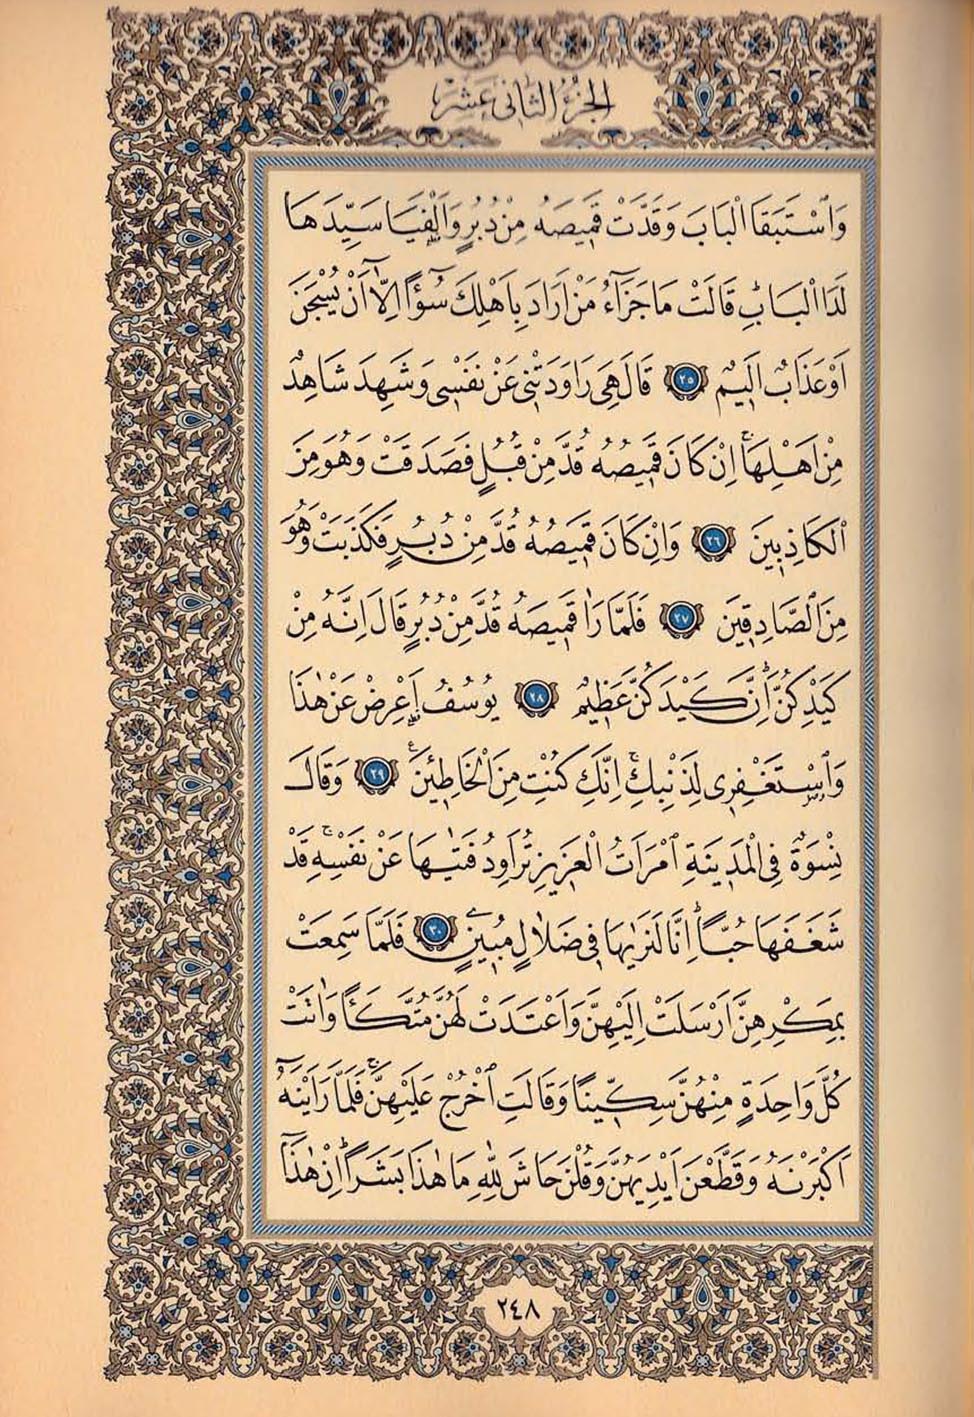 الجزء الثانى عشر
وَاسْتَبَقَا الْبَابَ وَقَدَّتْ قَمِيصَهُ مِنْ دُبُرٍ وَاَلْفَيَا سَيِّدَهَا
لَدَا الْبَابِۜ قَالَتْ مَا جَزَٓاءُ مَنْ اَرَادَ بِاَهْلِكَ سُٓوءًا اِلَّٓا اَنْ يُسْجَنَ
اَوْ عَذَابٌ اَلِيمٌ ﴿٢٥﴾ قَالَ هِيَ رَاوَدَتْنِي عَنْ نَفْسِي وَشَهِدَ شَاهِدٌ
مِنْ اَهْلِهَاۚ اِنْ كَانَ قَمِيصُهُ قُدَّ مِنْ قُبُلٍ فَصَدَقَتْ وَهُوَ مِنَ
الْكَاذِبِينَ ﴿٢٦﴾ وَاِنْ كَانَ قَمِيصُهُ قُدَّ مِنْ دُبُرٍ فَكَذَبَتْ وَهُوَ
مِنَ الصَّادِقِينَ ﴿٢٧﴾ فَلَمَّا رَاٰ قَمِيصَهُ قُدَّ مِنْ دُبُرٍ قَالَ اِنَّهُ مِنْ
كَيْدِكُنَّۜ اِنَّ كَيْدَكُنَّ عَظِيمٌ ﴿٢٨﴾ يُوسُفُ اَعْرِضْ عَنْ هٰذَا
وَاسْتَغْفِرِي لِذَنْبِكِۚ اِنَّكِ كُنْتِ مِنَ الْخَاطِـِٔينَ۟ ﴿٢٩﴾ وَقَالَ
نِسْوَةٌ فِي الْمَدِينَةِ امْرَاَتُ الْعَزِيزِ تُرَاوِدُ فَتٰيهَا عَنْ نَفْسِهِۚ قَدْ
شَغَفَهَا حُبًّاۜ اِنَّا لَنَرٰيهَا فِي ضَلَالٍ مُبِينٍ ﴿٣٠﴾ فَلَمَّا سَمِعَتْ
بِمَكْرِهِنَّ اَرْسَلَتْ اِلَيْهِنَّ وَاَعْتَدَتْ لَهُنَّ مُتَّكَـًٔا وَاٰتَتْ
كُلَّ وَاحِدَةٍ مِنْهُنَّ سِكِّينًا وَقَالَتِ اخْرُجْ عَلَيْهِنَّۚ فَلَمَّا رَاَيْنَهُٓ
اَكْبَرْنَهُ وَقَطَّعْنَ اَيْدِيَهُنَّ وَقُلْنَ حَاشَ لِلّٰهِ مَا هٰذَا بَشَرًاۜ اِنْ هٰذَٓا
٢٤٨